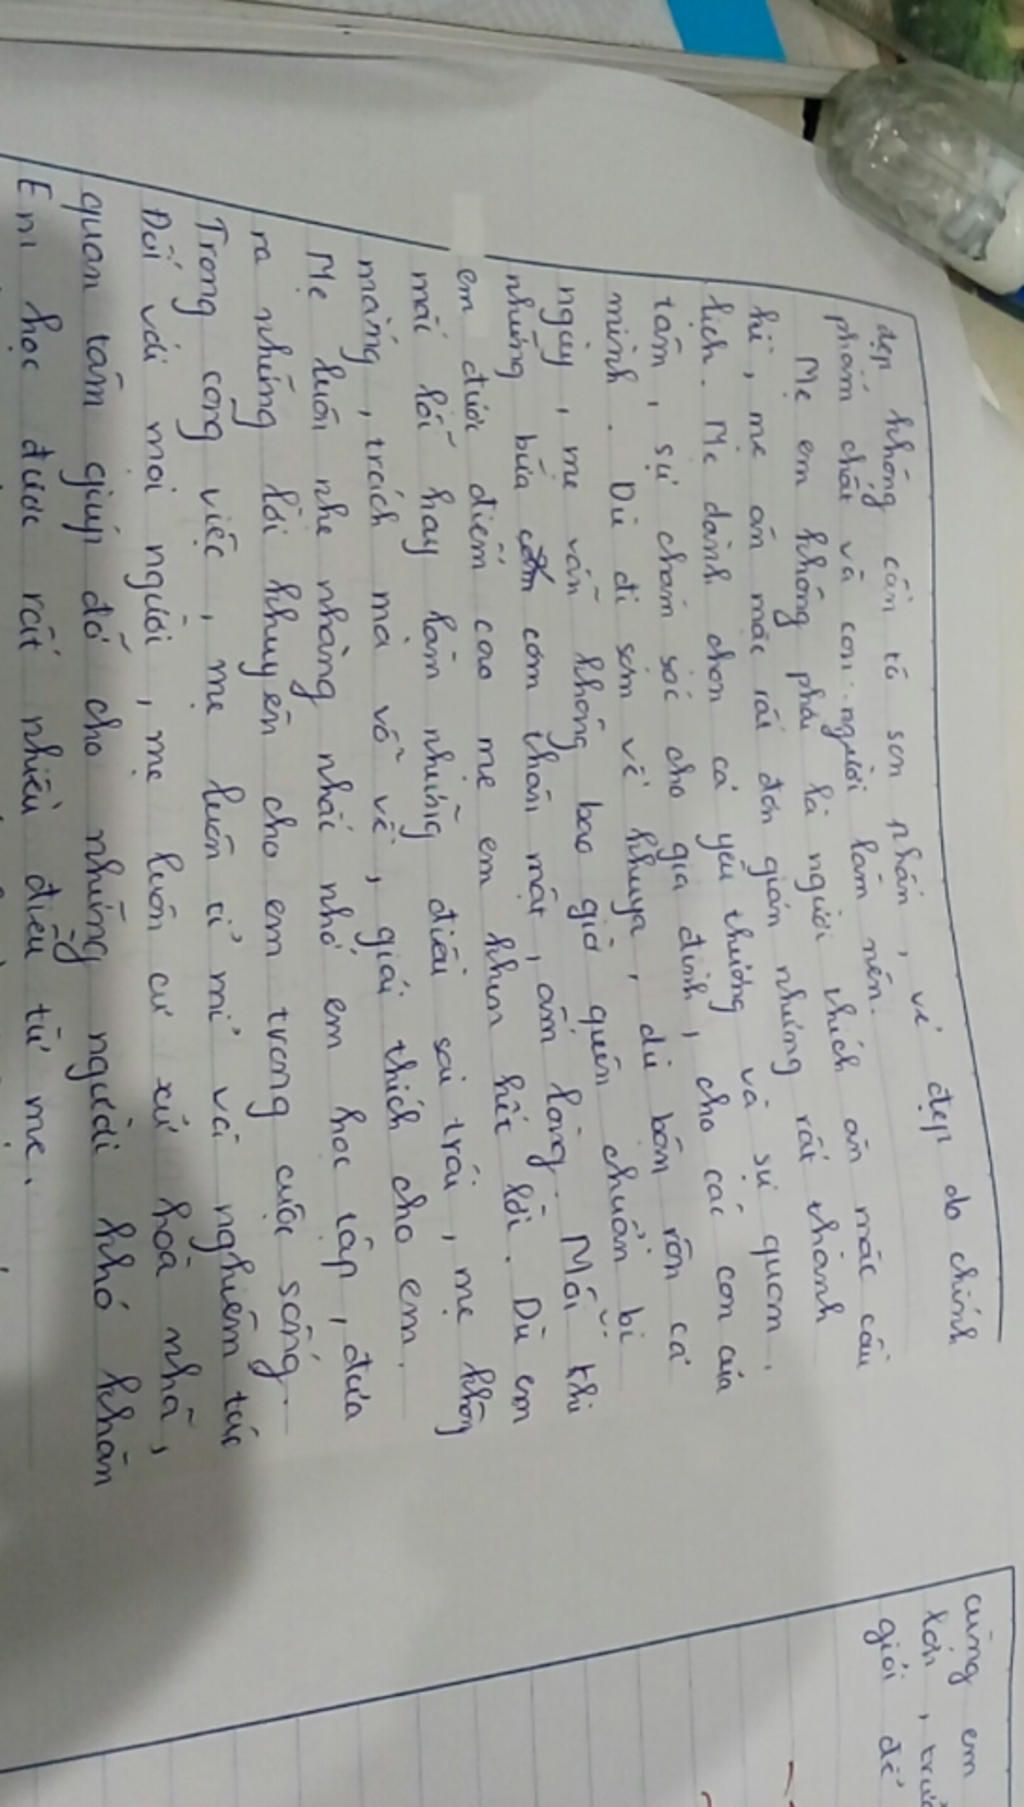 đẹp không cần tô son nhấn, vẻ đẹp do chính
phẩm chất và con người làm nên.
Mẹ em không phải là người thích ăn mặc cầu
kì, mẹ ăn mặc rất đơn giản nhưng rất thanh
lịch. Mẹ dành chọn cả yêu thương và sự quan
tâm, sự chăm sóc cho gia đình, cho các con của
mình. Dù đi sớm về khuya, dù bận rộn cả
ngày, mẹ vẫn không bao giờ quên chuẩn bị
những bữa cơm thân mật, ấm lòng. Mỗi khi
em được điểm cao mẹ em khen hết lời. Dù em
mắc lỗi hay làm những điều sai trái, mẹ không
mắng, trách mà vỗ về, giải thích cho em.
Mẹ luôn nhẹ nhàng nhắc nhở em học tập, đưa
ra những lời khuyên cho em trong cuộc sống.
Trong công việc, mẹ luôn tỉ mỉ và nghiêm túc
Đối với mọi người, mẹ luôn cư xử hoà nhã,
quan tâm giúp đỡ cho những người khó khăn
Em học được rất nhiều điều từ mẹ.
cùng em
lớn,
giỏi để